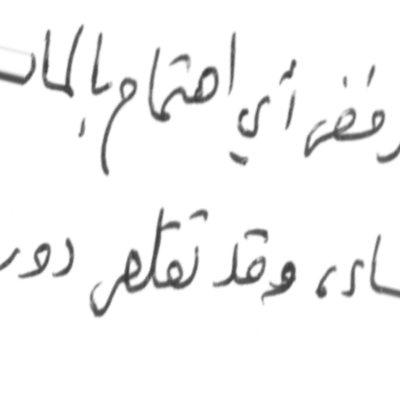 رفض أي اهتمام بالما
ساد، وقد تقلص دور